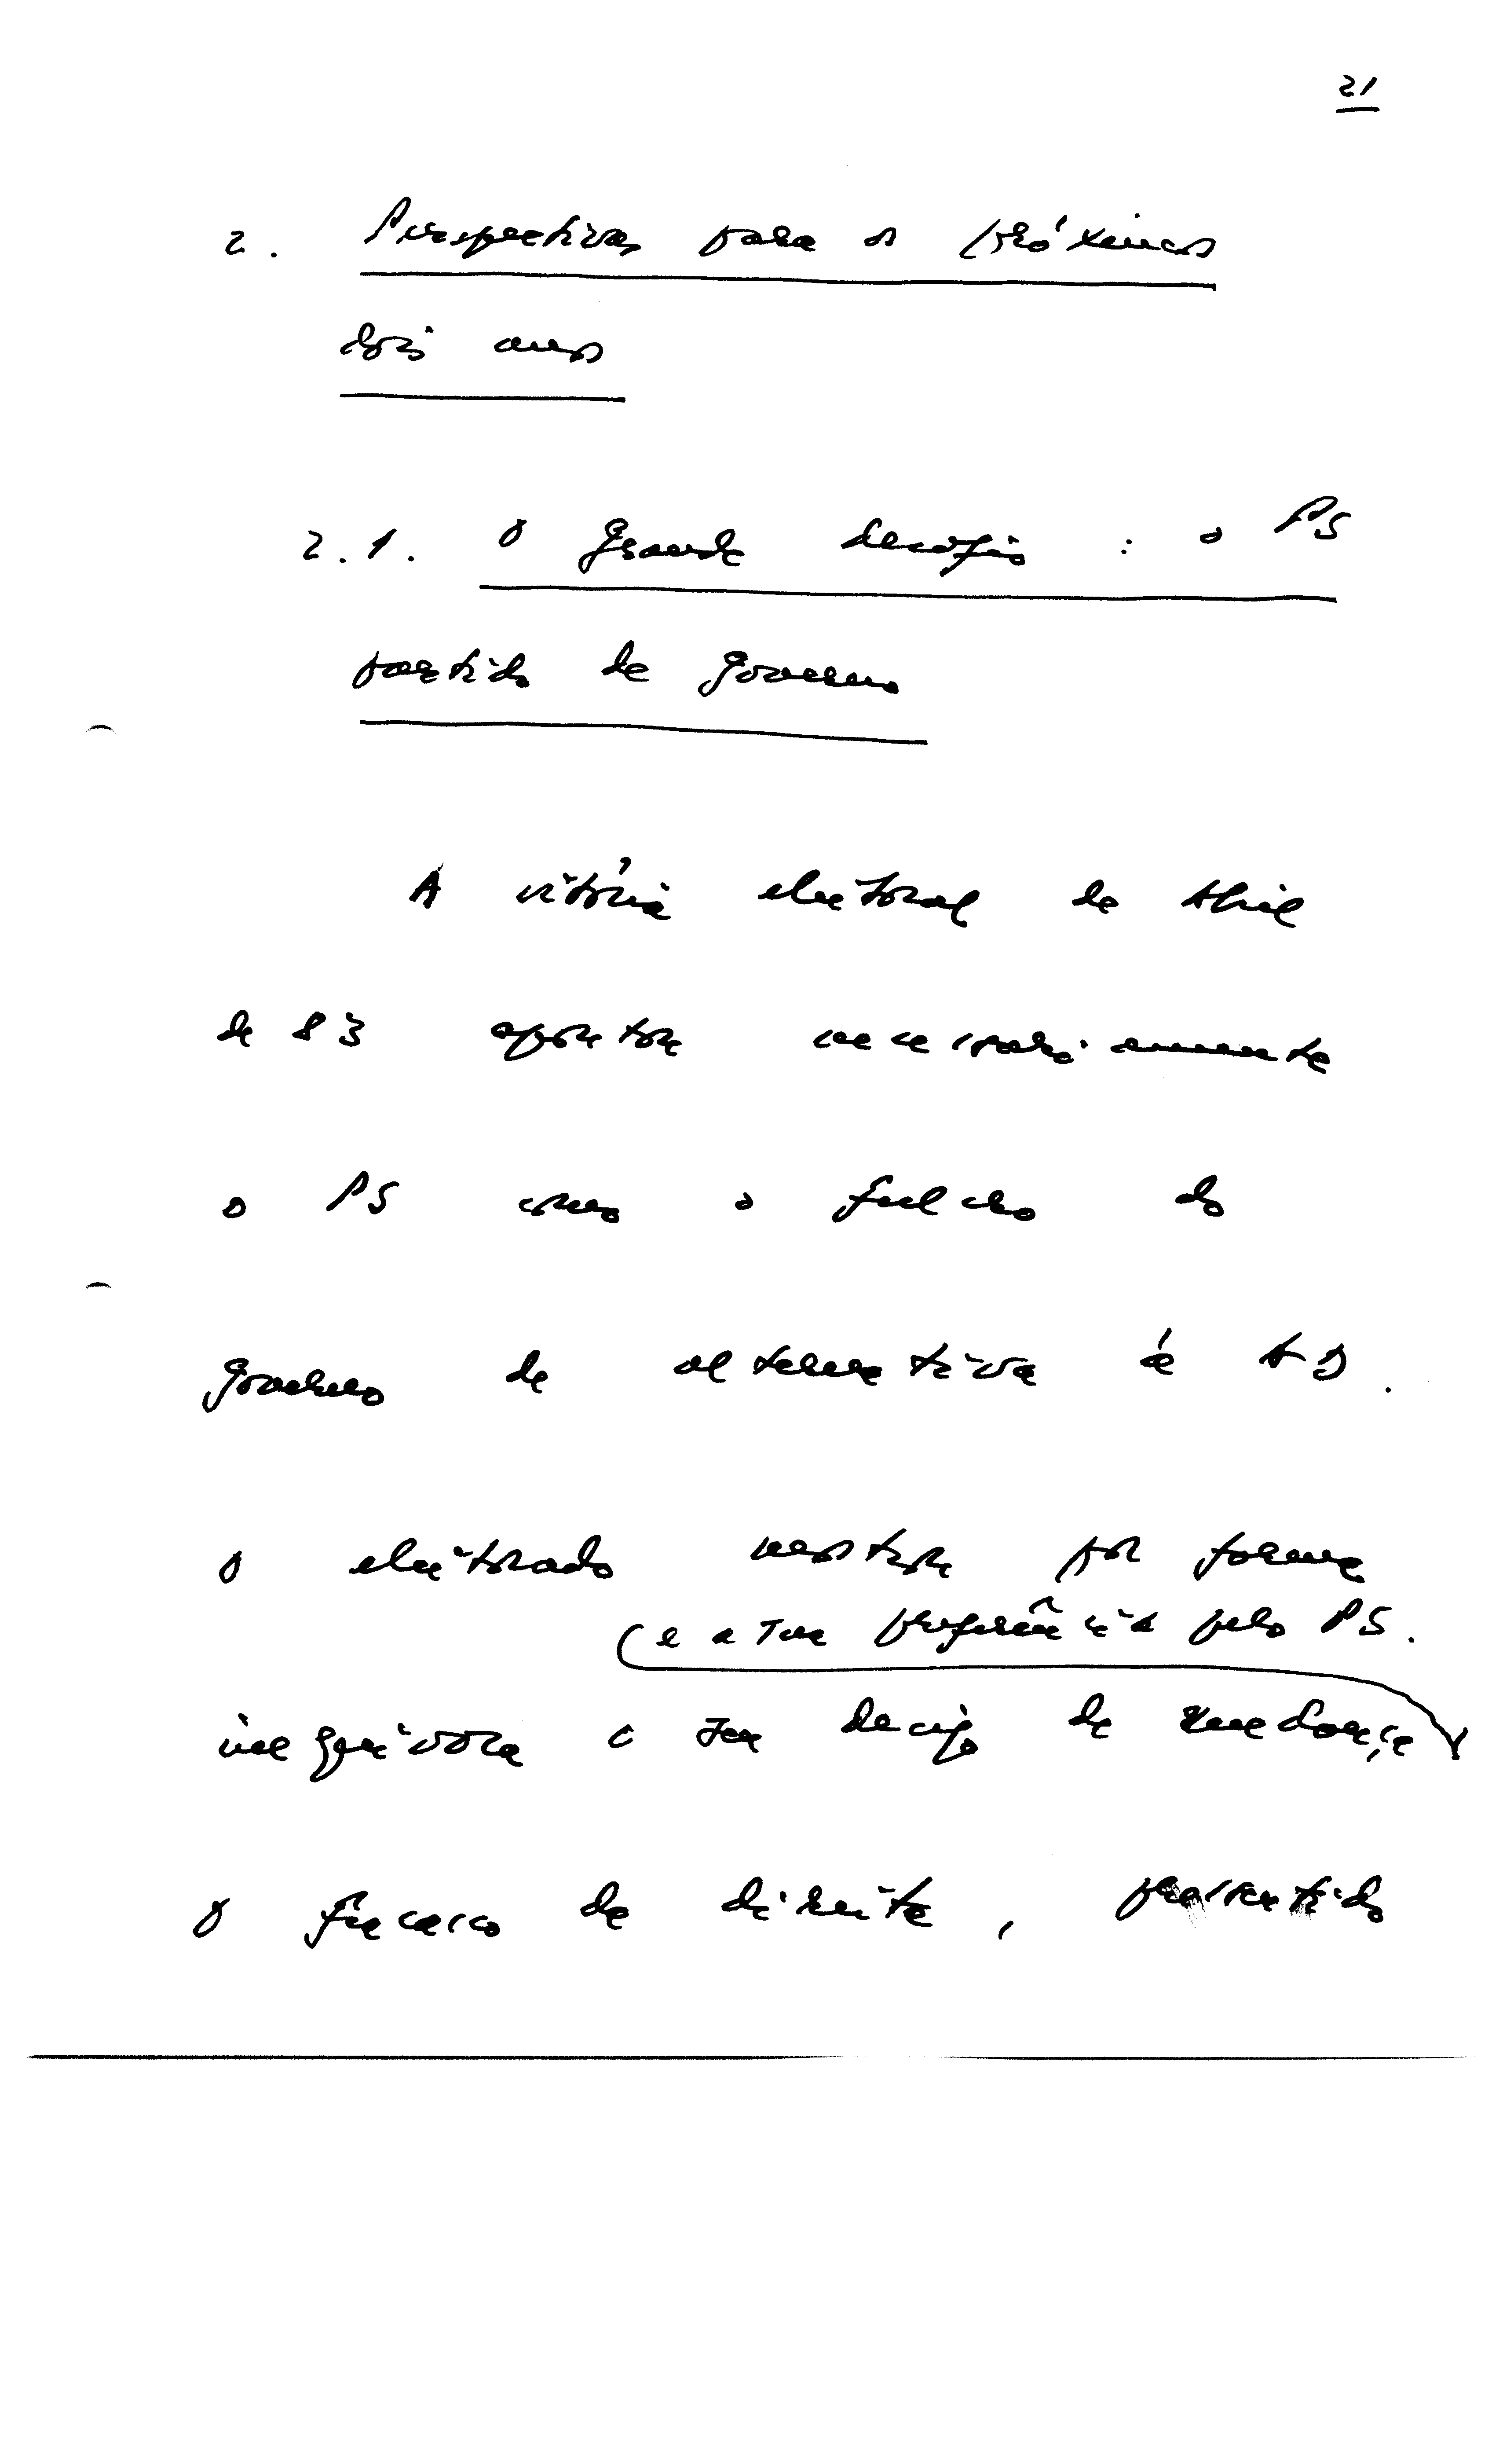 21
2. Perspectivas para os próximos
dois anos
2.1. O grande desafio : o PS
partido de governo
A vitória eleitoral de Abril
de 83 apontou necessariamente
o PS como o fulcro do
governo de alternativa à AD.
O eleitorado mostrou por forma
(e a sua preferência pelo PS.
inequívoca o seu desejo de mudança
O fracasso da direita, pressentido